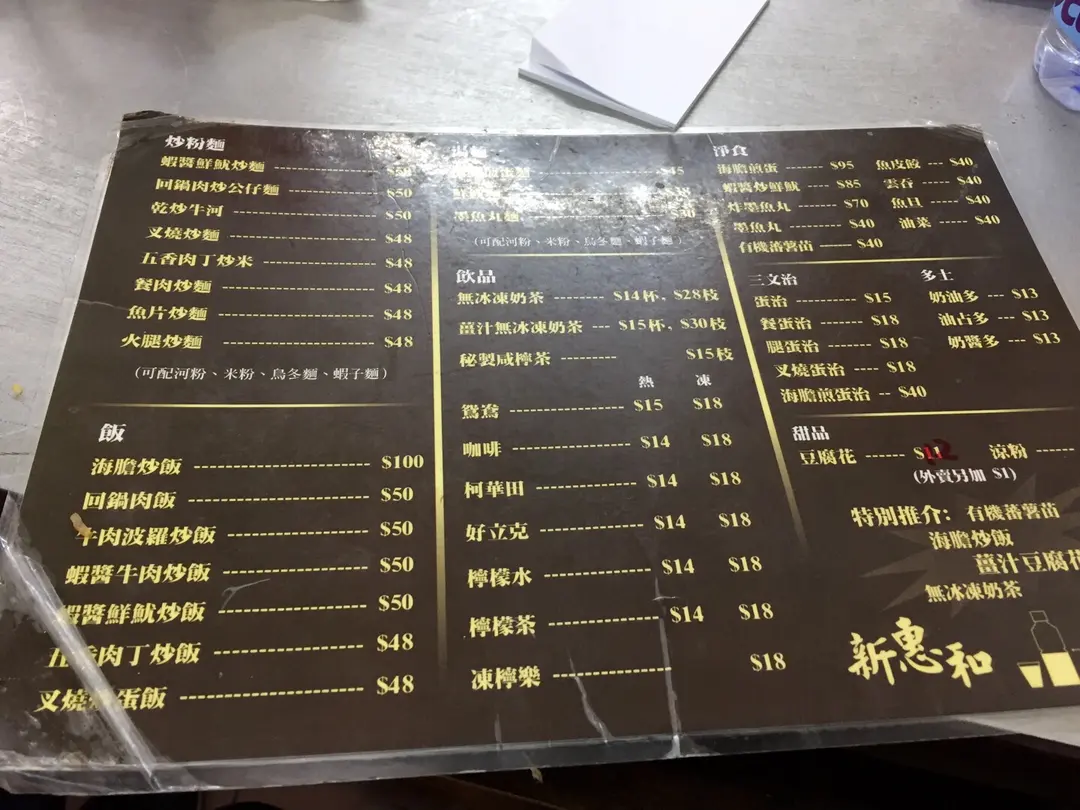 炒粉麵
蝦醬鮮魷炒麵 ---------------- $50
回鍋肉炒公仔麵 -------------- $50
乾炒牛河 ------------------- $50
叉燒炒麵 ------------------- $48
五香肉丁炒米 --------------- $48
餐肉炒麵 ------------------- $48
魚片炒麵 ------------------- $48
火腿炒麵 ------------------- $48
(可配河粉、米粉、烏冬麵、蝦子麵)
飯
海膽炒飯 ------------------- $100
回鍋肉飯 ------------------- $50
牛肉波羅炒飯 --------------- $50
蝦醬牛肉炒飯 --------------- $50
蝦醬鮮魷炒飯 --------------- $50
五香肉丁炒飯 --------------- $48
叉燒 蛋飯 ---------------- $48
墨魚丸麵
(可配河粉、米粉、烏冬麵、蝦子麵)
飲品
無冰凍奶茶 -------- $14杯, $28枝
薑汁無冰凍奶茶 --- $15杯, $30枝
秘製咸檸茶 --------- $15枝
熱 凍
鴛鴦 ---------------- $15 $18
咖啡 ---------------- $14 $18
柯華田 -------------- $14 $18
好立克 -------------- $14 $18
檸檬水 -------------- $14 $18
檸檬茶 -------------- $14 $18
凍檸樂 -------------- $18
淨食
海膽煎蛋 ------- $95 魚皮餃 --- $40
蝦醬炒鮮魷 ---- $85 雲吞 ----- $40
炸墨魚丸 ------ $70 魚旦 ----- $40
墨魚丸 -------- $40 油菜 ----- $40
有機蕃薯苗 ---- $40
三文治 多士
蛋治 ---------- $15 奶油多 --- $13
餐蛋治 -------- $18 油占多 --- $13
腿蛋治 -------- $18 奶醬多 --- $13
叉燒蛋治 ---- $18
海膽煎蛋治 -- $40
甜品
豆腐花 ------ $12 涼粉 -----
(外賣另加 $1)
特別推介: 有機蕃薯苗
海膽炒飯
薑汁豆腐花
無冰凍奶茶
新惠和